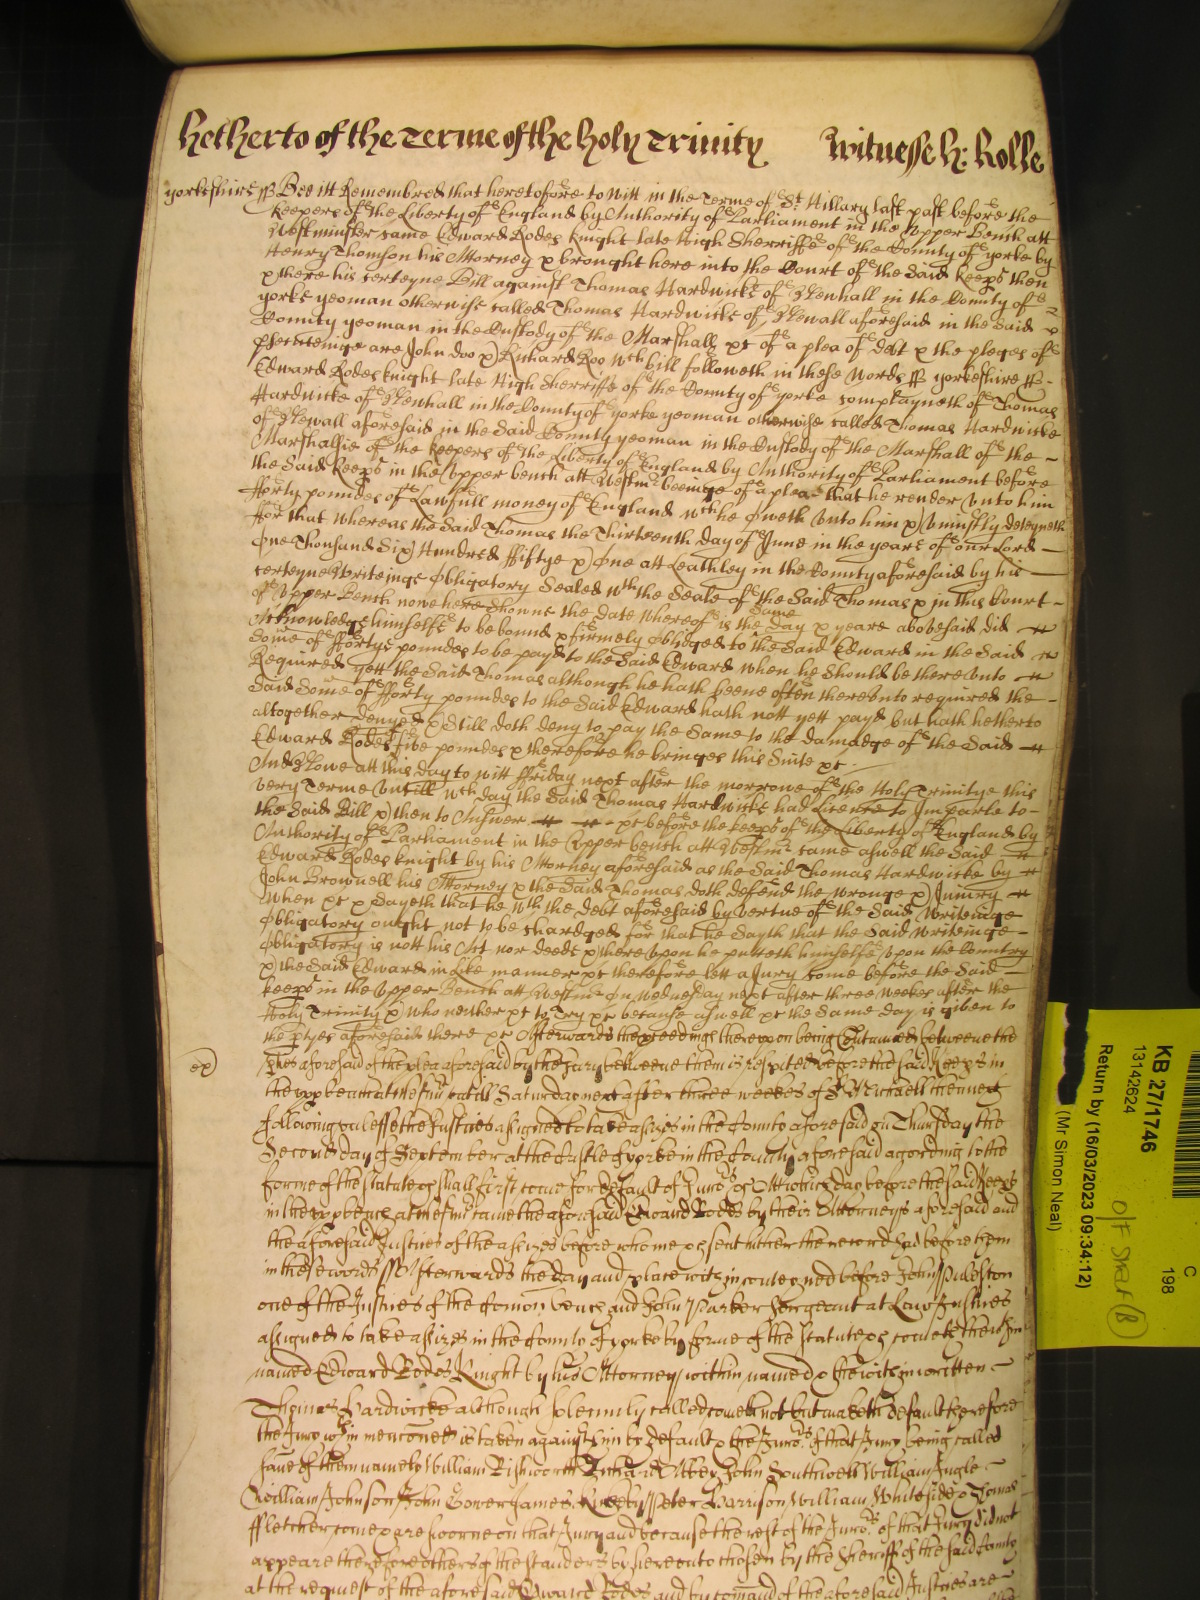 Hetherto of the Terme of the Holy Trinity Witnesse H: Rolle
Yorkeshire ss Bee itt Remembred that heretofore to witt in the Terme of St Hillary last past before the
Keepers of the Liberty of England by Authority of Parliament in the Upper Bench att
Westminster came Edward Rodes Knight late High Sherriffe of the County of Yorke by
Henry Thomson his Attorney & brought here into the Court of the said Keeps then
& there his certeyne Bill against Thomas Hardwicke of in the County of
Yorke yeoman otherwise called Thomas Hardwicke of aforesaid in the said
County yeoman in the Custody of the Marshall &c of a plea of debt & the pleges of
are John Doo & Richard Roo wch bill followeth in these words ss Yorkeshire ss
Edward Rodes Knight late High Sherriffe of the County of Yorke complayneth of Thomas
Hardwicke of in the County of Yorke yeoman otherwise called Thomas Hardwicke
of aforesaid in the said County yeoman in the Custody of the Marshall of the
Marshalsie of the Keepers of the Liberty of England by Authority of Parliament before
the said Keeps in the Upper bench att Westmr beeinge of a plea that he render unto him
fforty poundes of Lawfull money of England wch he oweth unto him & uniustly deteyneth
ffor that whereas the said Thomas the Thirteenth day of June in the yeare of our Lord
One Thousand Six Hundred ffiftye & One att Leathley in the County aforesaid by his
certeyne Writeinge Obligatory Sealed wth the Seale of the said Thomas & in this Court
of Upper Bench nowe here Showne the date whereof is the same day & yeare abovesaid did
Acknowledge himselfe to be bound & firmely Obliged to the said Edward in the said
Some of ffortye poundes to be payd to the said Edward when he should be thereunto
Required yett the said Thomas although he hath beene often thereunto required the
said Some of fforty poundes to the said Edward hath nott yett payd but hath hetherto
altogether denyed & Still doth deny to pay the same to the damadge of the said
Edward Rodes five poundes & therefore he bringes this Suite &c
And Nowe att this day to witt ffriday next after the morrowe of the Holy Trinitye this
very Terme untill wch day the said Thomas Hardwicke had Licente to Imparle to
the said Bill & then to Answer &c before the Keeps of the Liberty of England by
Authority of Parliament in the Upper bench att Westmr came aswell the said
Edward Rodes Knight by his Attorney aforesaid as the said Thomas Hardwicke by
John Brownell his Attorney & the said Thomas doth defend the wronge & Iniury
when &c & sayeth that he wth the debt aforesaid by vertue of the said Writeinge
Obligatory ought not to be chardged for that he sayth that the said writeinge
Obligatory is nott his Act nor deede & thereupon he putteth himselfe upon the Country
& the said Edward in Like manner &c therefore lett a Jury come before the said
Keeps in the Upper Bench att Westmr on Wednesday next after three weekes after the
Holy Trinity & who neither &c to Try &c because aswell &c the same day is given to
the ptyes aforesaid there &c Afterwards the pceedings thereupon being Continued betweene the
pties aforesaid of the plea aforesaid by the Jury betweene them is respited before the said Keeps in
the upp bench at Westmr untill Saturday next after three weekes of St Michaell then next
following unlesse the Justices assigned to take assizes in the County aforesaid on Thursday the
Second day of September at the Castle of Yorke in the County aforesaid according to the
forme of the statute &c shall first come for default of Juro's &c Att which day before the said Keeps
in the upp bench at Westmr came the aforesaid Edward Rodes by their Attorneys aforesaid and
the aforesaid Justices of the assizes before whome &c sent hither the record had before them
in these words ss Afterwards the day and place within conteyned before John Puleston
one of the Justices of the Comon bench and John Parker Serjeant at Law Justices
assigned to take assizes in the County of Yorke by forme of the statute &c cometh the within
named Edward Rodes Knight by his Attorney within named & the within written
Thomas Hardwicke although solemnly called cometh not but maketh default therefore
the Jury wthin mencioned is taken against him by default & the Juro's of that Jury being called
some of them namely William Rishworth Richard Abbey John Southwell William Ingle
William Johnson John Gower James Peter Harrison William Whiteside & Thomas
ffletcher come & are sworne on that Jury and because the rest of the Juro's of that Jury did not
appeare therefore others of the standers by hereunto chosen by the Sheriff of the said County
at the request of the aforesaid Edward Rodes and by comand of the aforesaid Justices are
ex
C
KB 27/1746
198
13142624
Return by (16/03/2023 09:34:12)
(Mr Simon Neal)
O/F Shelf (B)